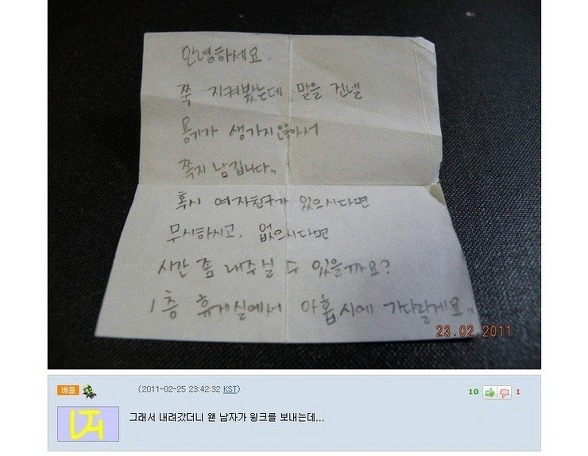 안녕하세요.
쭉 지켜봤는데 말을 건넬
용기가 생기지않아서
쪽지 남깁니다,,
혹시 여자친구가 있으시다면
무시하시고, 없으시다면
시간 좀 내주실 수 있을까요?
1층 휴게실에서 아홉시에 기다릴게요.
23.02 2011
베플 (2011-02-25 23:42:32 KST) 10 1
그래서 내려갔더니 왠 남자가 윙크를 보내는데...